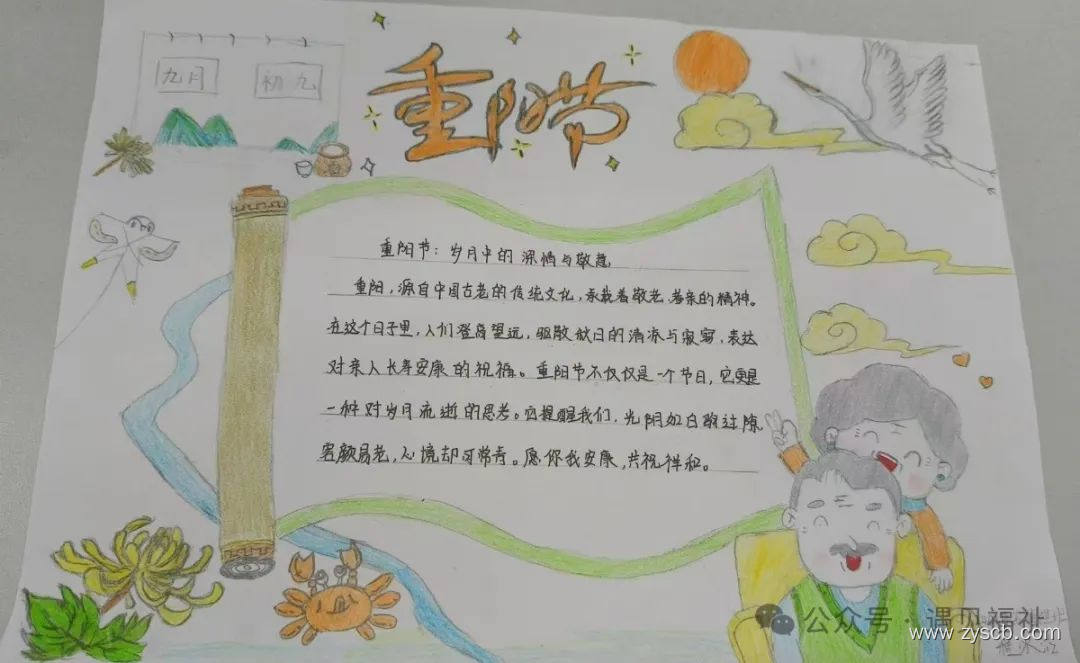 九月 初九
重阳节
重阳节：岁月中的深情与敬意
重阳，源自中国古老的传统文化，承载着敬老、养亲的精神。
在这个日子里，人们登高望远，驱散秋日的清凉与寂寥，表达
对亲人长寿安康的祝福。重阳节不仅仅是一个节日，它更是
一种对岁月流逝的思考。它提醒我们，光阴如白驹过隙
容颜易老，心境却可常青。愿你我安康，共祝祥和。
公众号·遇见福祉
www.zyscb.com